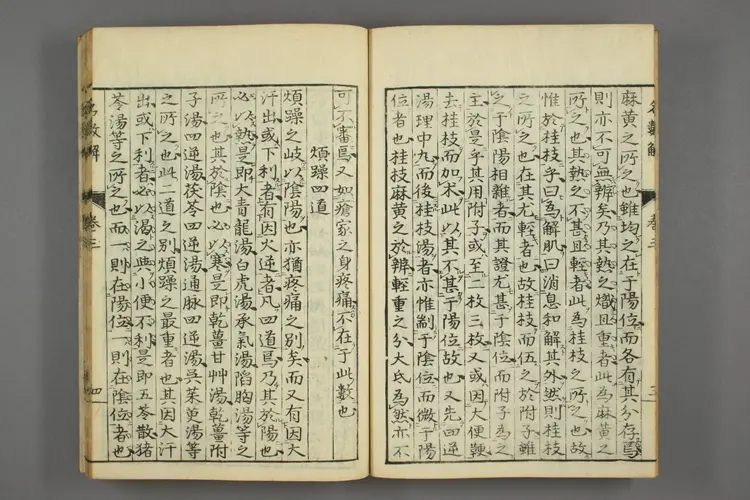 麻黄之所之也雖均之在于陽位而各有其分存焉
則亦不可無辨矣乃其熱之熾且重者此為麻黄之
所之也其熱之不甚且輕者此為桂枝之所之也故
惟於桂枝乎曰為解肌曰消息和解其外然則桂枝
之所之也在其尤輕者也故桂枝而伍之於附子雖
之于陰陽相雜者而其證尤甚于陰位而附子為之
主於是乎其用附子或至二枚三枚又或因大便鞕
去桂枝而加朮此以其不甚于陽位故也又先四逆
湯理中丸而後桂枝湯者亦惟劇于陰位而微于陽
位者也桂枝麻黄之於辨輕重之分大氐為然亦不
名數解
卷三
三
可不審焉又如瘡家之身疼痛不在于此數也
煩躁四道
煩躁之岐以陰陽也亦猶疼痛之別矣而又有因大
汗出或下利者有因火逆者凡四道焉乃其於陽也
必以熱是即大青龍湯白虎湯承氣湯陷胸湯等之
所之也其於陰也必以寒是即乾薑甘艸湯乾薑附
子湯四逆湯茯苓四逆湯通脉四逆湯吳茱萸湯等
之所之也此二道之別煩躁之最重者也其因大汗
出或下利者必以渴之與小便不利是即五苓散猪
苓湯等之所之也而一則在陽位一則在陰位者也
名數解
卷三
四